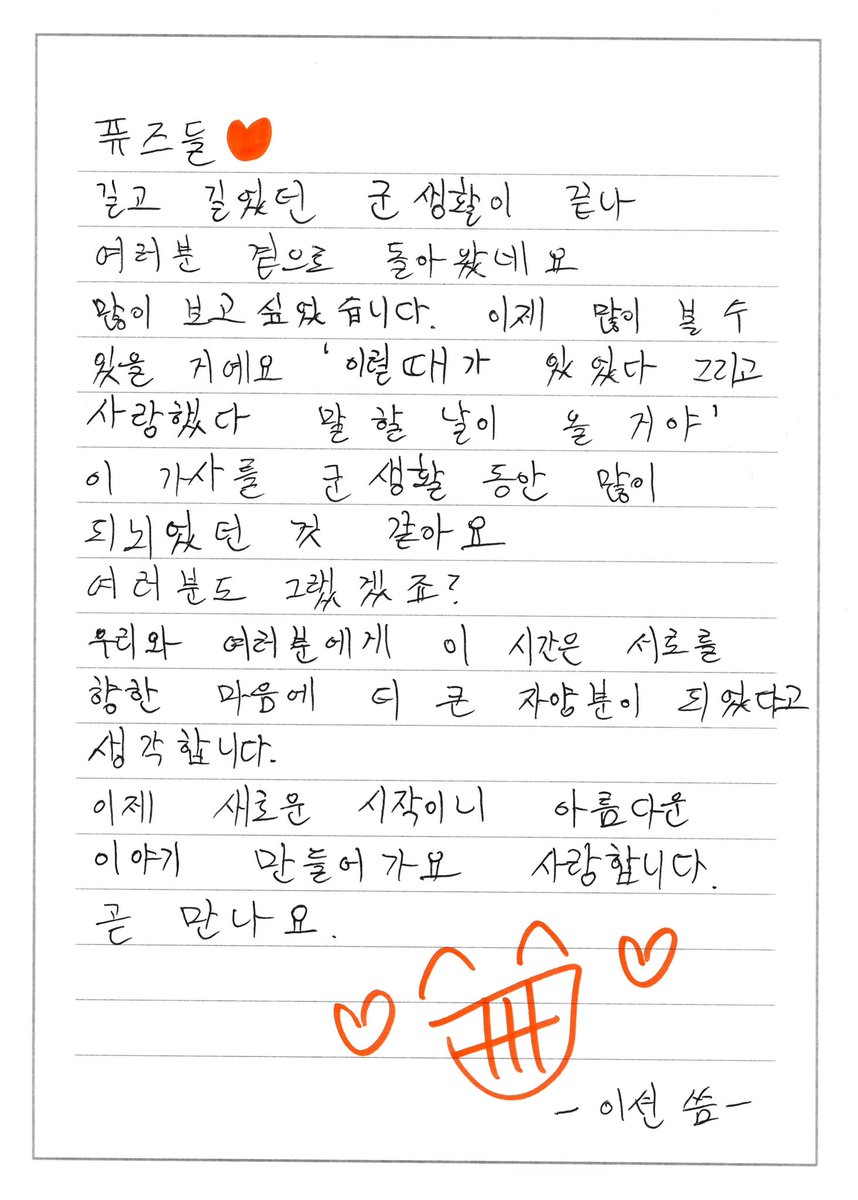 퓨즈들
길고 길었던 군 생활이 끝나
여러분 곁으로 돌아왔네요
많이 보고싶었습니다. 이제 많이 볼 수
있을 거예요 '이럴때가 있었다 그리고
사랑했다 말 할 날이 올 거야'
이 가사를 군 생활 동안 많이
되뇌었던 것 같아요
여러분도 그랬겠죠?
우리와 여러분에게 이 시간은 서로를
향한 마음에 더 큰 자양분이 되었다고
생각합니다.
이제 새로운 시작이니 아름다운
이야기 만들어가요 사랑합니다.
곧 만나요.
- 이션 씀 -